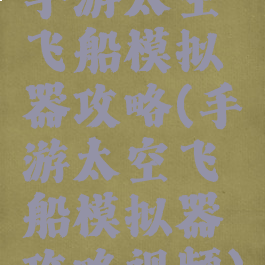 手游太空
飞船模拟
器攻略(手
游太空飞
船模拟器
攻略视频)